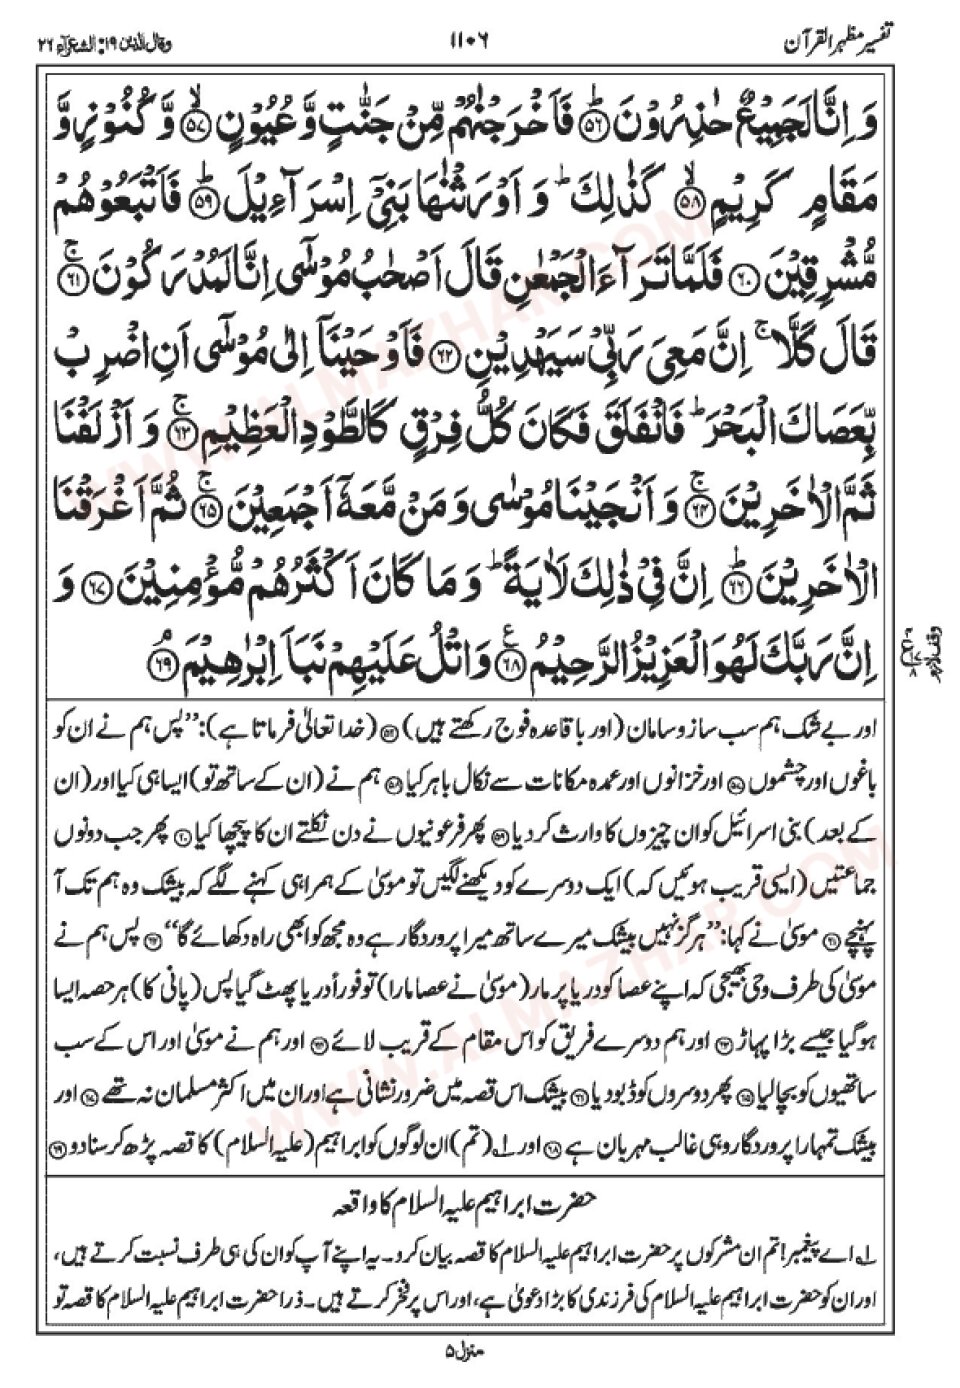 تفسیر مظہر القرآن
۱۱۰۶
وقال الذین ۱۹: الشعرآء ۲۶
وَ اِنَّا لَجَمِیْعٌ حٰذِرُوْنَ ﴿۵۶﴾ؕ فَاَخْرَجْنٰهُمْ مِّنْ جَنّٰتٍ وَّ عُیُوْنٍ ﴿۵۷﴾ۙ وَّ كُنُوْزٍ وَّ
مَقَامٍ كَرِیْمٍ ﴿۵۸﴾ۙ كَذٰلِكَ ؕ وَ اَوْرَثْنٰهَا بَنِیْۤ اِسْرَآءِیْلَ ﴿۵۹﴾ؕ فَاَتْبَعُوْهُمْ
مُّشْرِقِیْنَ ﴿۶۰﴾ فَلَمَّا تَرَآءَ الْجَمْعٰنِ قَالَ اَصْحٰبُ مُوْسٰۤی اِنَّا لَمُدْرَكُوْنَ ﴿۶۱﴾ۚ
قَالَ كَلَّا ۚ اِنَّ مَعِیَ رَبِّیْ سَیَهْدِیْنِ ﴿۶۲﴾ فَاَوْحَیْنَاۤ اِلٰی مُوْسٰۤی اَنِ اضْرِبْ
بِّعَصَاكَ الْبَحْرَ ؕ فَانْفَلَقَ فَكَانَ كُلُّ فِرْقٍ كَالطَّوْدِ الْعَظِیْمِ ﴿۶۳﴾ۚ وَ اَزْلَفْنَا
ثَمَّ الْاٰخَرِیْنَ ﴿۶۴﴾ۚ وَ اَنْجَیْنَا مُوْسٰی وَ مَنْ مَّعَهٗۤ اَجْمَعِیْنَ ﴿۶۵﴾ۚ ثُمَّ اَغْرَقْنَا
الْاٰخَرِیْنَ ﴿۶۶﴾ؕ اِنَّ فِیْ ذٰلِكَ لَاٰیَةً ؕ وَ مَا كَانَ اَكْثَرُهُمْ مُّؤْمِنِیْنَ ﴿۶۷﴾ وَ
اِنَّ رَبَّكَ لَهُوَ الْعَزِیْزُ الرَّحِیْمُ ﴿۶۸﴾ع وَ اتْلُ عَلَیْهِمْ نَبَاَ اِبْرٰهِیْمَ ﴿۶۹﴾ۘ
وقف لازم
اور بے شک ہم سب سازو سامان (اور باقاعدہ فوج رکھتے ہیں) ﴿۵۶﴾ (خدا تعالیٰ فرماتا ہے): ”پس ہم نے ان کو
باغوں اور چشموں ﴿۵۷﴾ اور خزانوں اور عمدہ مکانات سے نکال باہر کیا ﴿۵۸﴾ ہم نے (ان کے ساتھ تو) ایسا ہی کیا اور (ان
کے بعد) بنی اسرائیل کو ان چیزوں کا وارث کر دیا ﴿۵۹﴾ پھر فرعونیوں نے دن نکلتے ان کا پیچھا کیا ﴿۶۰﴾ پھر جب دونوں
جماعتیں (ایسی قریب ہوئیں کہ) ایک دوسرے کو دیکھنے لگیں تو موسیٰ کے ہمراہی کہنے لگے کہ بیشک وہ ہم تک آ
پہنچے ﴿۶۱﴾ موسیٰ نے کہا: ”ہرگز نہیں بیشک میرے ساتھ میرا پروردگار ہے وہ مجھ کو ابھی راہ دکھائے گا“ ﴿۶۲﴾ پس ہم نے
موسیٰ کی طرف وحی بھیجی کہ اپنے عصا کو دریا پر مار (موسیٰ نے عصا مارا) تو فوراً دریا پھٹ گیا پس (پانی کا) ہر حصہ ایسا
ہو گیا جیسے بڑا پہاڑ ﴿۶۳﴾ اور ہم دوسرے فریق کو اس مقام کے قریب لائے ﴿۶۴﴾ اور ہم نے موسیٰ اور اس کے سب
ساتھیوں کو بچا لیا ﴿۶۵﴾ پھر دوسروں کو ڈبو دیا ﴿۶۶﴾ بیشک اس قصہ میں ضرور نشانی ہے اور ان میں اکثر مسلمان نہ تھے ﴿۶۷﴾ اور
بیشک تمہارا پروردگار وہی غالب مہربان ہے ﴿۶۸﴾ اور ۱؎ (تم) ان لوگوں کو ابراہیم (علیہ السلام) کا قصہ پڑھ کر سنا دو ﴿۶۹﴾
حضرت ابراہیم علیہ السلام کا واقعہ
۱؎ اے پیغمبر! تم ان مشرکوں پر حضرت ابراہیم علیہ السلام کا قصہ بیان کرو۔ یہ اپنے آپ کو ان کی ہی طرف نسبت کرتے ہیں،
اور ان کو حضرت ابراہیم علیہ السلام کی فرزندی کا بڑا دعویٰ ہے، اور اس پر فخر کرتے ہیں۔ ذرا حضرت ابراہیم علیہ السلام کا قصہ تو
منزل ۵
WWW.ALMAZHAR.COM
WWW.ALMAZHAR.COM